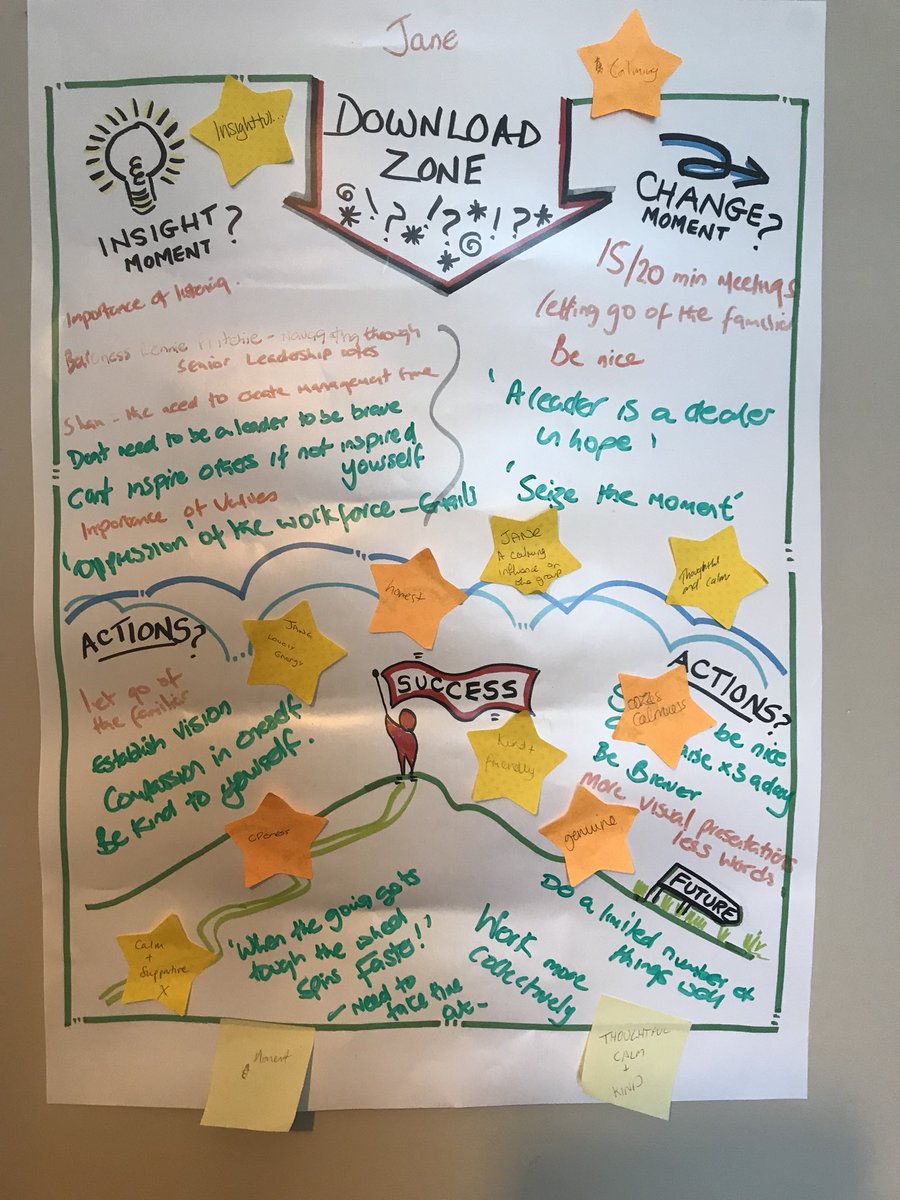 Jane
Calming
Insightful...
DOWNLOAD
ZONE
INSIGHT
MOMENT?
CHANGE
MOMENT?
Importance of listening.
navigating through
Senior Leadership roles
the need to create management time
Don't need to be a leader to be brave
Cant inspire others if not inspired
yourself
Importance of Values
'oppression' of the workforce - Emails
15/20 min Meetings
letting go of the familiar
Be nice
'A leader is a dealer
in hope'
'Seize the moment'
JANE
A calming
influence on
the group
Thoughtful
and calm
honest
JANE
Lovely
Energy
ACTIONS?
let go of
the familiar
Establish vision
Compassion in oneself
Be kind to yourself.
SUCCESS
Kind +
friendly
ACTIONS?
Calmness
be nice
x3 a day
Be Braver
more visual presentations
less words
genuine
FUTURE
Calm
+
Supportive
X
'When the going gets
tough the wheel
spins Faster!'
- need to
take time
out -
Work more
Collectively
Do a limited number of
things well
Moment
THOUGHTFUL
CALM
+
KIND